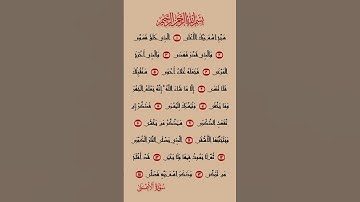 بسم الله الرحمن الرحيم
سبح اسم ربك الأعلى الذي خلق فسوى
والذي قدر فهدى والذي أخرج
المرعى فجعله غثاء أحوى سنقرئك
فلا تنسى إلا ما شاء الله إنه يعلم الجهر
وما يخفى ونيسرك لليسرى فذكر إن
نفعت الذكرى سيذكر من يخشى
ويتجنبها الأشقى الذي يصلى النار الكبرى
ثم لا يموت فيها ولا يحيى قد أفلح
من تزكى وذكر اسم ربه فصلى
سورة الأعلى